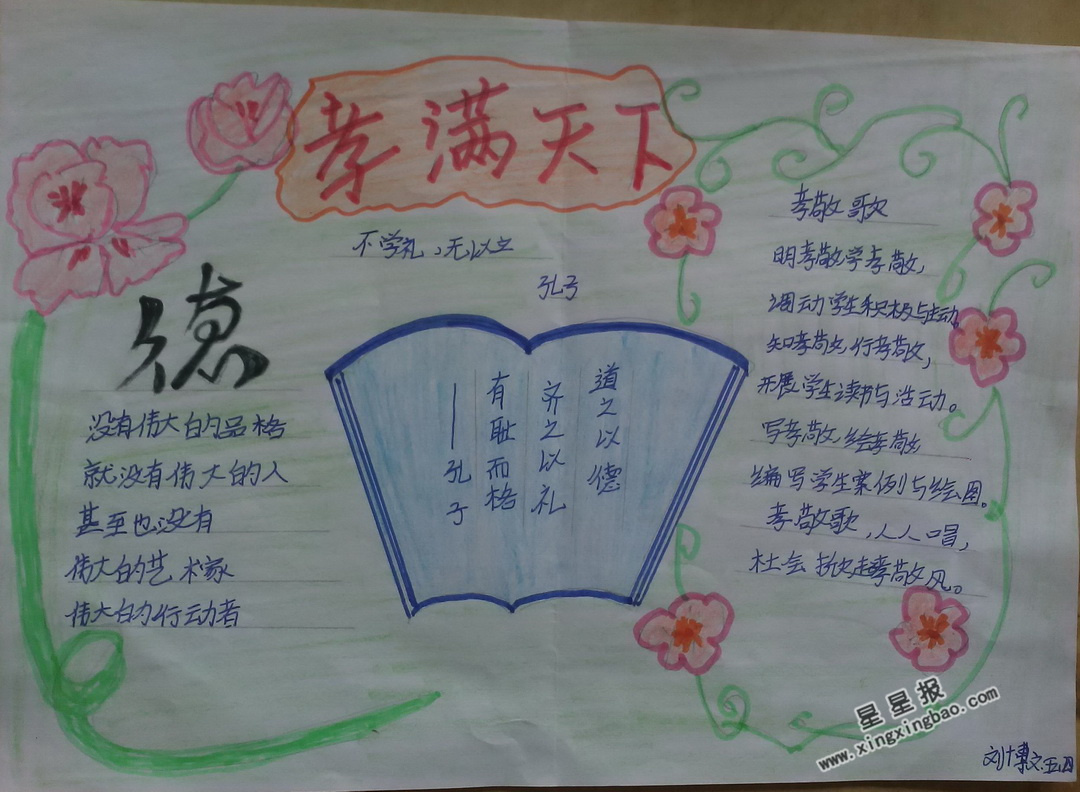 孝满天下
不学礼,无以立
孔子
德
没有伟大的品格
就没有伟大的人
甚至也没有
伟大的艺术家
伟大的行动者
道之以德
齐之以礼
有耻而格
——孔子
孝敬歌
明孝敬,学孝敬,
调动学生积极与主动。
知孝敬,行孝敬,
开展学生读书与活动。
写孝敬,绘孝敬
编写学生案例与绘图。
孝敬歌,人人唱,
社会扬起孝敬风。
刘博文 五四
星星报
www.xingxingbao.com